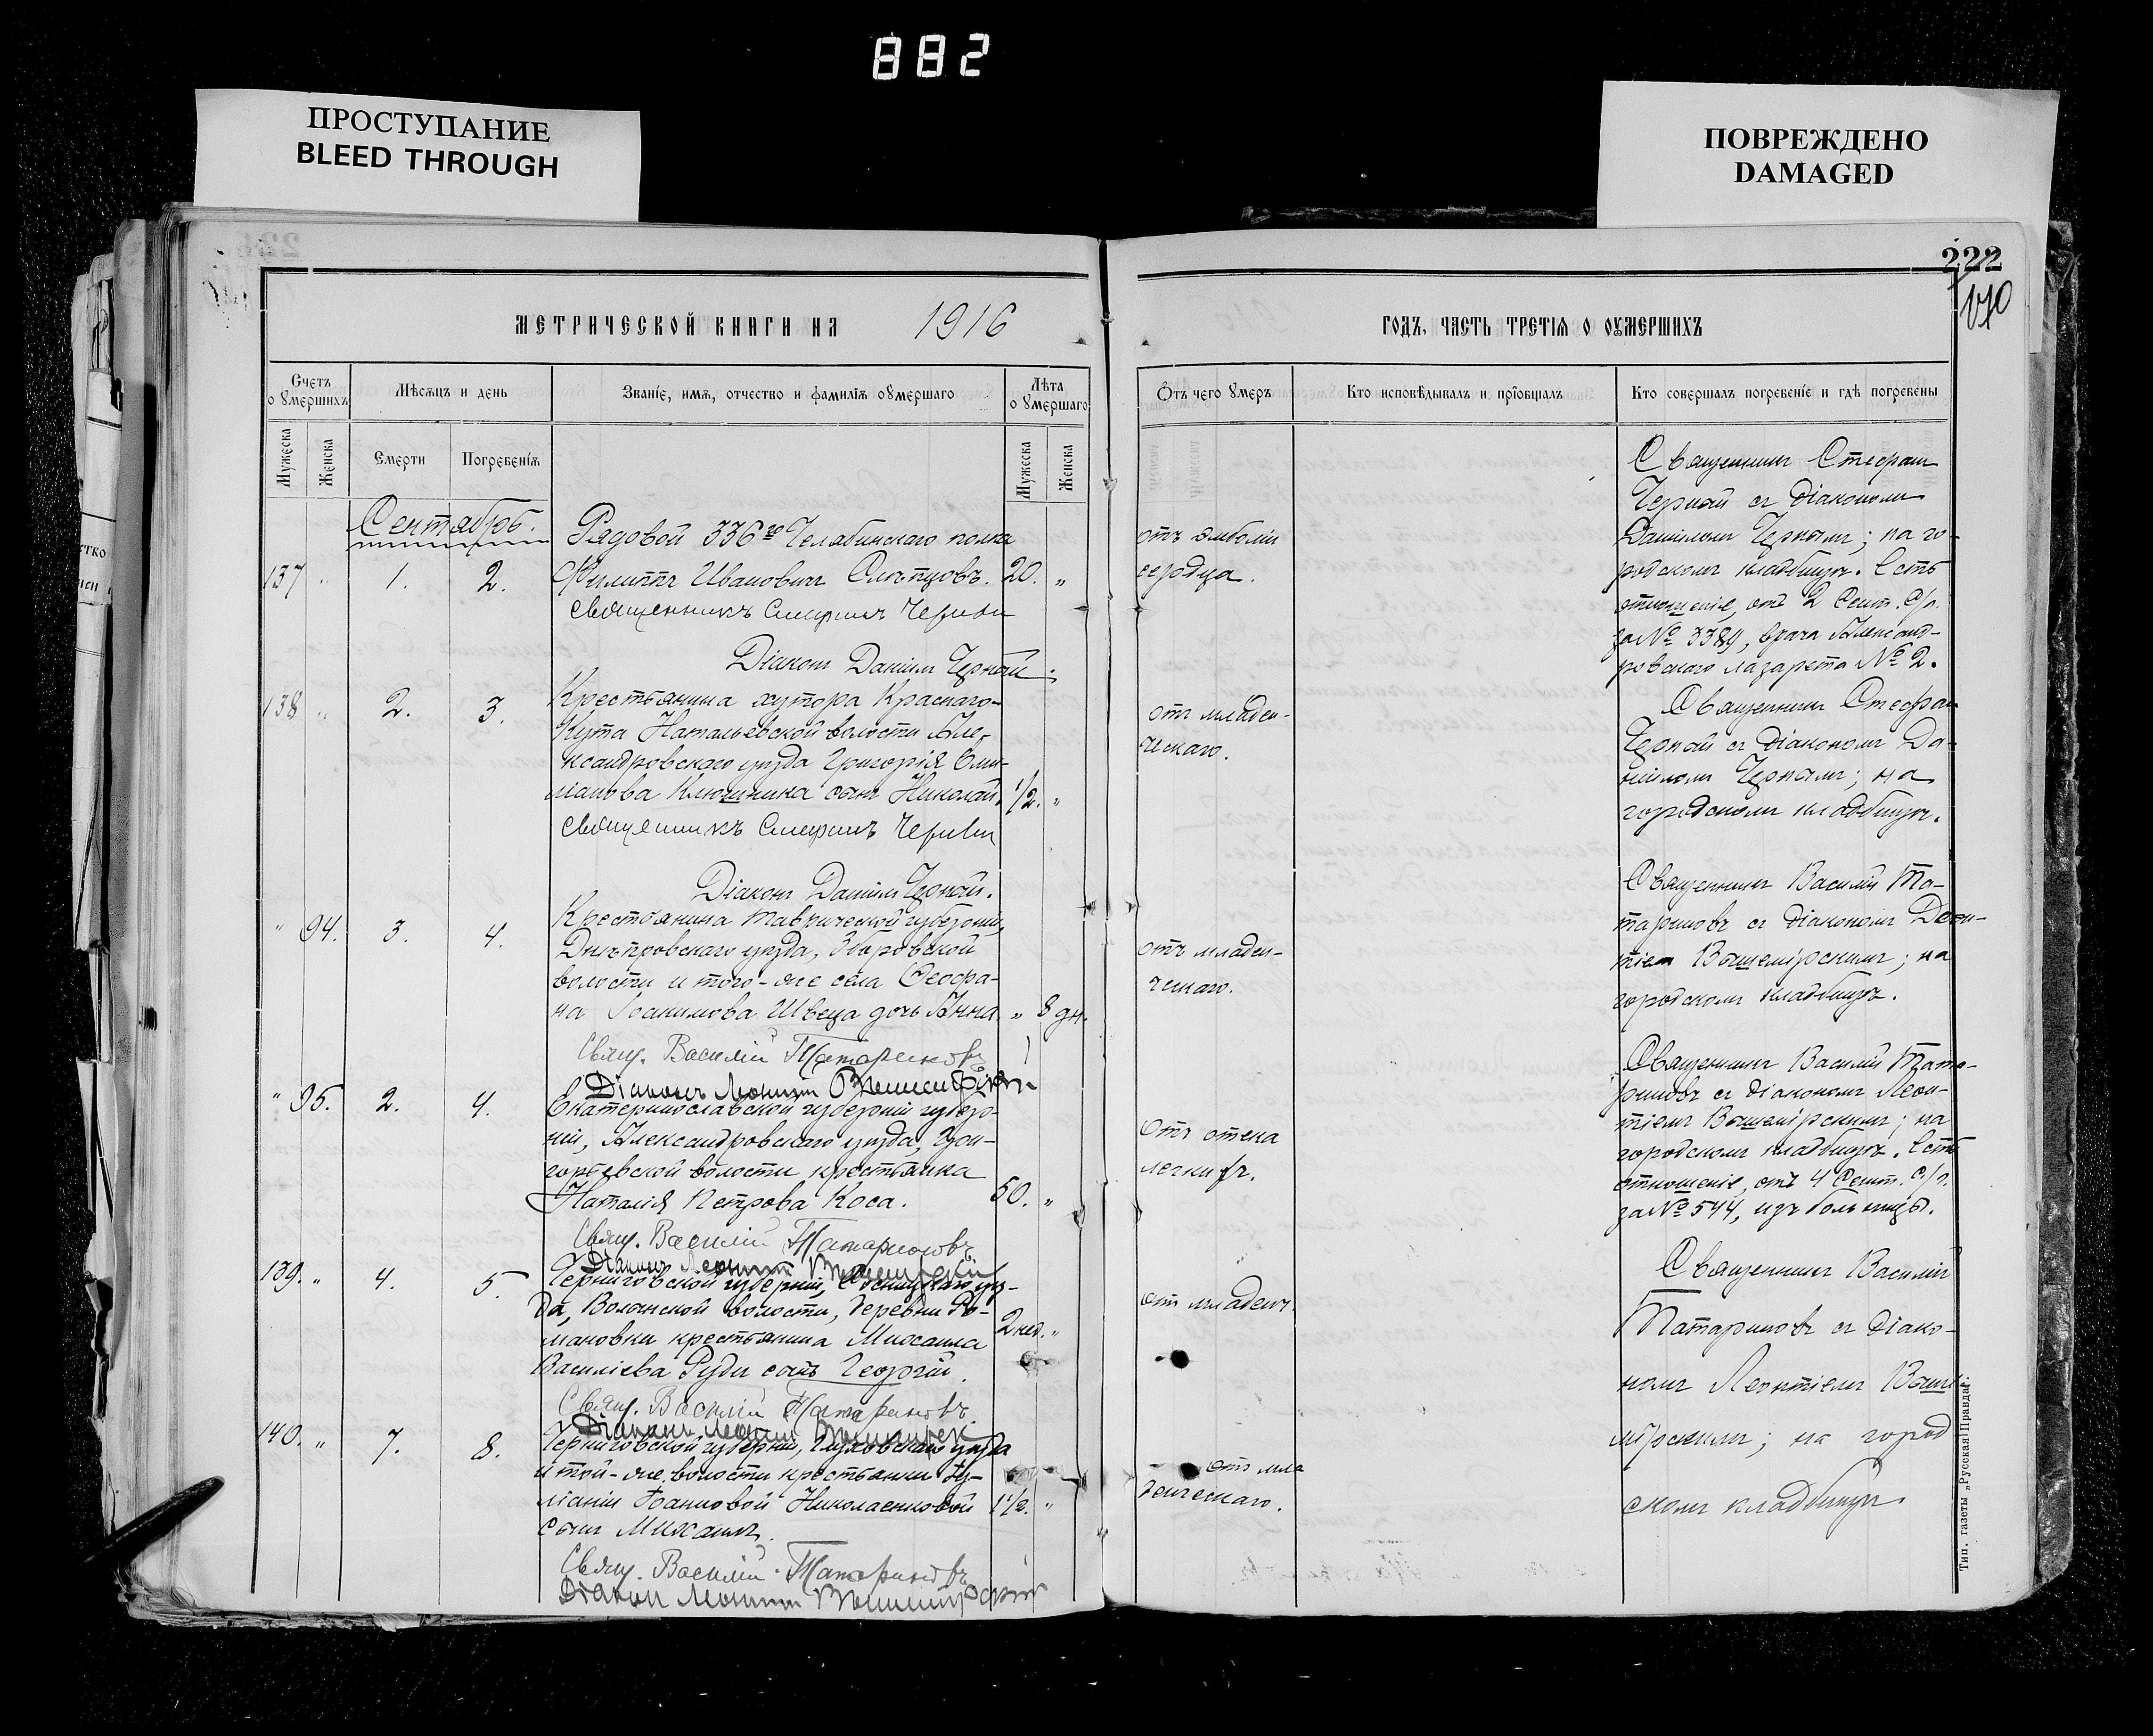 882
ПРОСТУПАНИЕ
BLEED THROUGH
ПОВРЕЖДЕНО
DAMAGED
222
170
МЕТРИЧЕСКОЙ КНИГИ НА 1916
ГОДЪ, ЧАСТЬ ТРЕТІѦ О ОУМЕРШИХЪ
Счетъ о умершихъ
Мѣсяцъ и день
Званіе, имя, отчество и фамилія оумершаго
Лѣта о умершаго
Отъ чего умеръ
Кто исповѣдывалъ и пріобщалъ
Кто совершалъ погребеніе и гдѣ погребены
Мужеска
Женска
Смерти
Погребенія
Мужеска
Женска
Сентябрь.
137 " 1. 2.
Рядовой 336го Челябинскаго полка
Филиппъ Ивановичъ Слѣпцовъ. 20. "
Священникъ Стефанъ Черный
Діаконъ Даніилъ Черный.
отъ эмболіи
сердца.
Священникъ Стефанъ
Черный съ діакономъ
Даніиломъ Чернымъ; на го-
родскомъ кладбищѣ. Есть
отношеніе, отъ 2 Сент. с/г.
за № 3389, врача Александ-
ровскаго лазарета № 2.
138 " 2. 3.
Крестьянина хутора Краснаго-
Кута Натальевской волости Але-
ксандровскаго уѣзда Григорія Еми-
ліанова Ключника сынъ Николай. 1/2. "
Священникъ Стефанъ Черный
Діаконъ Даніилъ Черный.
отъ младен-
ческаго.
Священникъ Стефанъ
Черный съ діакономъ Да-
ніиломъ Чернымъ; на
городскомъ кладбищѣ.
" 94. 3. 4.
Крестьянина Таврической губерніи,
Днѣпровскаго уѣзда, Збарьевской
волости и того-же села Феофа-
на Іоакимова Швеца дочь Анна. " 8 дн.
Свящ. Василій Татариновъ
Діаконъ Леонтій Вышемірскій
отъ младен-
ческаго.
Священникъ Василій Та-
тариновъ съ діакономъ Леон-
тіемъ Вышемірскимъ; на
городскомъ кладбищѣ.
" 95. 2. 4.
Екатеринославской губерніи губер-
ніи, Александровскаго уѣзда, Гри-
горьевской волости крестьянка
Наталія Петрова Коса. 50. "
Свящ. Василій Татариновъ
Діаконъ Леонтій Вышемірскій
Отъ отека
легкихъ.
Священникъ Василій Тата-
риновъ съ діакономъ Леон-
тіемъ Вышемірскимъ; на
городскомъ кладбищѣ. Есть
отношеніе, отъ 4 Сент. с/г.
за № 544, изъ больницы.
139. " 4. 5.
Черниговской губерніи, Сосницкаго уѣз-
да, Волынской волости, деревни Ро-
мановки крестьянина Михаила
Василіева Руди сынъ Георгій. 2 нед. "
Свящ. Василій Татариновъ
Діаконъ Леонтій Вышемірскій
отъ младенч.
Священникъ Василій
Татариновъ съ діако-
номъ Леонтіемъ Выше-
мірскимъ; на город
скомъ кладбищѣ.
140. " 7. 8.
Черниговской губерніи, Глуховскаго уѣзда
и той-же волости крестьянки Іу-
ліаніи Іоанновой Николаенковой 1 1/2. "
сынъ Михаилъ.
Свящ. Василій Татариновъ
Діаконъ Леонтій Вышемірскій
отъ мла
денческаго.
Тип. газеты „Русская Правда".